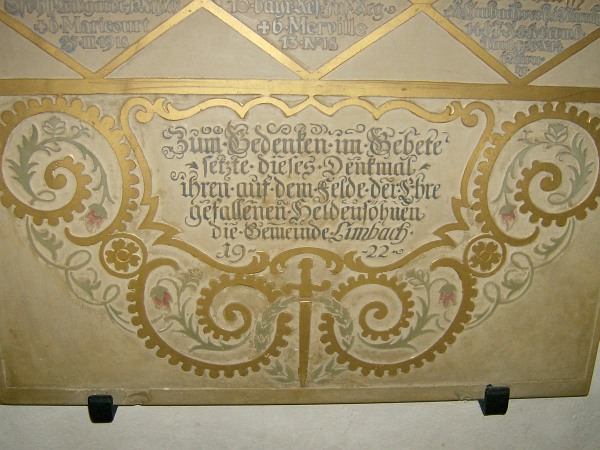 b. Maricourt · b. Merville
25·III·1918 · 15·IV·18
Züm·Gedenken·im·Gebete
setzte·dieses·Denkmal
ihren·auf·dem·Felde·der·Ehre
gefallenen·Heldensöhnen
die·Gemeinde·Limbach·
19 22